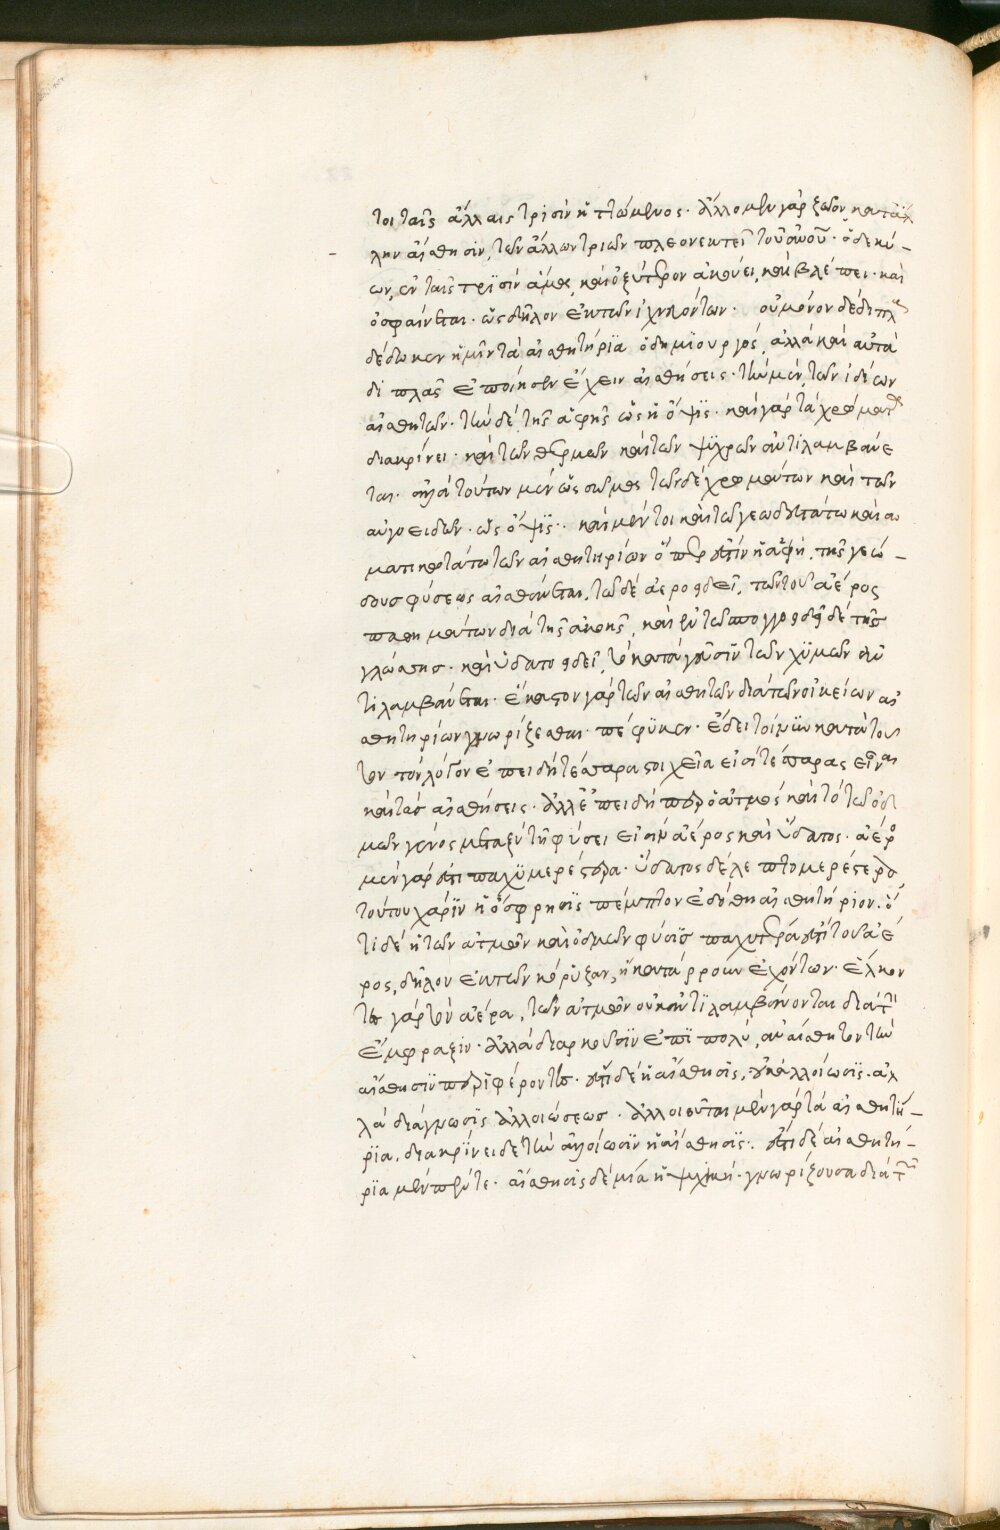 τοι ταῖς ἄλλαις τρισὶν ἡττώμενος. ἄλλο μὲν γὰρ ζῶον κατ' ἄλ
λην αἴσθησιν, τῶν ἄλλων τριῶν πλεονεκτεῖ τοῦ ἀνοῦ. ὁ δὲ κύ-
ων, ἐν ταῖς τρισὶν ἅμα, καὶ ὀξύτερον ἀκούει, καὶ βλέπει. καὶ
ὀσφραίνεται. ὡς δῆλον ἐκ τῶν ἰχνευόντων. οὐ μόνον δὲ διπλᾶ
δέδωκεν ἡμῖν τὰ αἰσθητήρια ὁ δημιουργός, ἀλλὰ καὶ αὐτὰ
διπλᾶς ἐποίησεν ἔχειν αἰσθήσεις. τὴν μὲν, τῶν ἰδέων
αἰσθητῶν. τὴν δὲ, τῆς ἁφῆς ὡς ἡ ὄψις. καὶ γὰρ τὰ χρώματα
διακρίνει. καὶ τῶν θερμῶν καὶ τῶν ψυχρῶν ἀντιλαμβάνε
ται. ἀλλὰ τούτων μὲν ὡς σῶμα τῶν δὲ χρωμάτων καὶ τῶν
αὐγοειδῶν. ὡς ὄψις. καὶ μέντοι καὶ τῷ γεωδεστάτω καὶ σω
ματικωτάτω τῶν αἰσθητηρίων ὅπερ ἐστὶν ἡ ἁφὴ, τῆς γεώ-
δους φύσεως αἰσθάνεται. τῷ δὲ ἀεροειδεῖ, τῶν τοῦ ἀέρος
παθημάτων διὰ τῆς ἀκοῆς, καὶ ἐν τῷ σπογγοειδεῖ δὲ τῆς
γλώσσης. καὶ ὑδατοειδεῖ, τῶν χυμῶν ἀν
τιλαμβάνεται. ἕκαστον γὰρ τῶν αἰσθητῶν διὰ τῶν οἰκείων αἰ
σθητηρίων γνωρίζεσθαι πέφυκεν. ἔδει τοίνυν κατὰ τοῦ
τον τὸν λόγον ἐπειδὴ τέσσαρα στοιχεῖα εἰσὶ τέσσαρας εἶναι
καὶ τὰς αἰσθήσεις. ἀλλ' ἐπειδὴ περ ὁ ἀτμὸς καὶ τὸ τῶν ὀδ
μῶν γένος μεταξὺ τὴν φύσει εἰσὶν ἀέρος καὶ ὕδατος. ἀέρος
μὲν γάρ ἐστι παχυμερέστερα. ὕδατος δὲ λεπτομερέστερα
τούτου χάριν ἡ ὄσφρησις πέμπτον ἐδόθη αἰσθητήριον. ὅ
τι δὲ ἡ τῶν ἀτμῶν καὶ ὀδμῶν φύσις παχυτέρα ἐστὶ τοῦ ἀέ
ρος, δῆλον ἐκ τῶν κόρυζαν, ἢ κατάρρουν ἐχόντων. ἕλκον
τες γὰρ τὸν ἀέρα, τῶν ἀτμῶν οὐκ ἀντιλαμβάνονται διὰ τὴν
ἔμφραξιν. ἀλλὰ διαρκοῦσιν ἐπὶ πολὺ, ἀναίσθητον τὴν
αἴσθησιν περιφέροντες. ἔστι δὲ ἡ αἴσθησις, οὐκ ἀλλοίωσις. ἀλ
λὰ διάγνωσις ἀλλοιώσεως. ἀλλοιοῦται μὲν γὰρ τὰ αἰσθητή-
ρια. διακρίνει δὲ τὴν ἀλλοίωσιν ἡ αἴσθησις. ἔστι δὲ αἰσθητή-
ρια μὲν πέντε. αἴσθησις δὲ μία ἡ ψυχικὴ. γνωρίζουσα διὰ τῶν